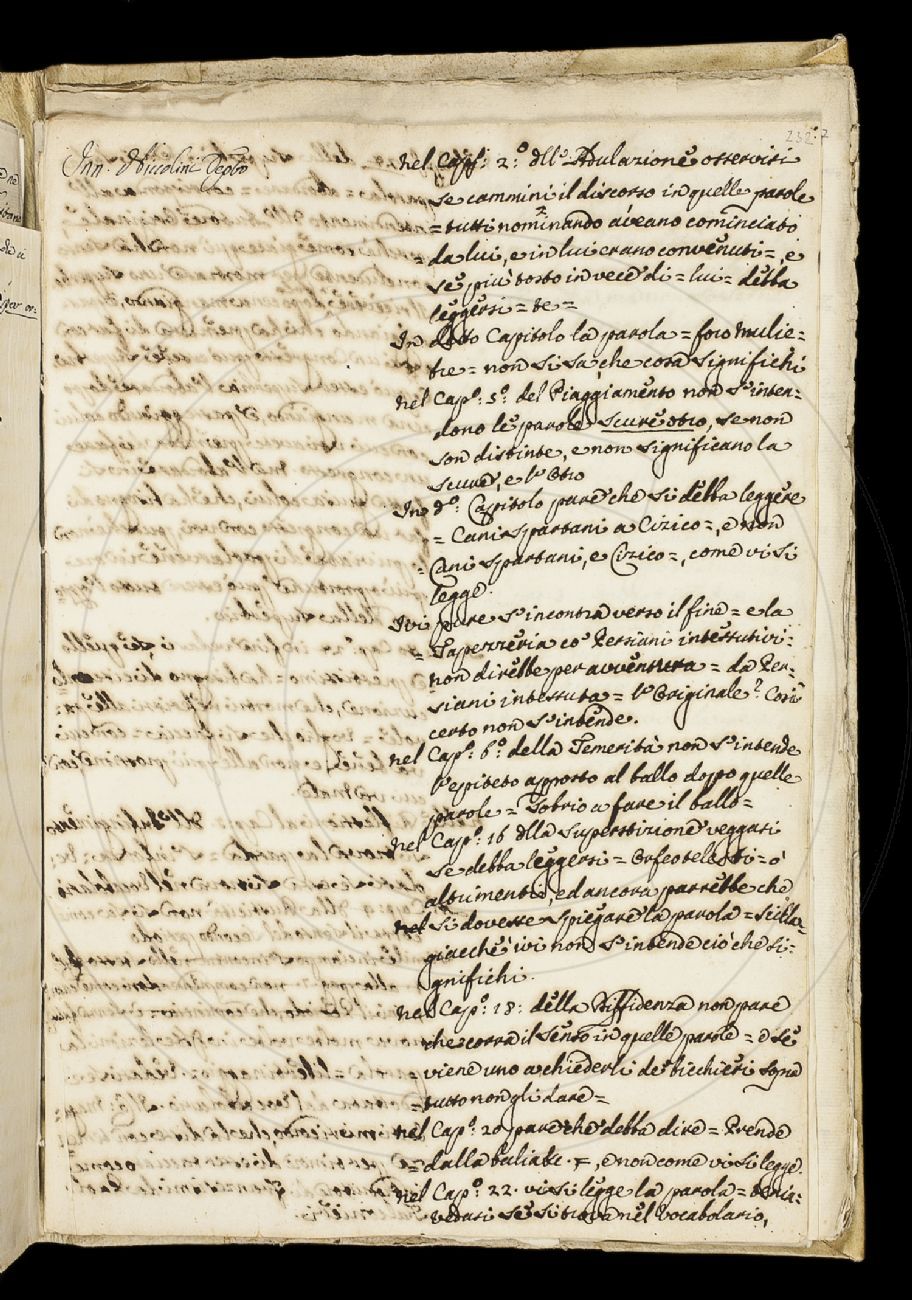 232. 7
Inn. Niccolini
nel Capº: 2.º dll' Adulazione osservisi
se cammini il discorso in quelle parole
= tutti nominando aveano cominciato
= da lui, e in lui erano convenuti =, e
se più tosto in vece di = lui = debba
leggersi = te =
In detto Capitolo la parola = foro mulie=
bre = non si sa che cosa significhi
nel Capº: 5º. del Piaggiamento non s'inten=
dono le parole Scure otio, se non
son distinte, e non significano la
scure, e l'Otio
In dº: Capitolo pare che si debba leggere
= Cani Spartani a Cizico =, e non
= Cani Spartani, e Cizico =, come vi si
legge.
Ivi pure s'incontra verso il fine = e la
= Taperzeria co' Persiani intessutivi =
non direbbe per avventura = da Per=
siani intessuta = l'Originale? Così
certo non s'intende.
nel Capº: 6º: della Temerità non s'intende
l'epiteto apposto al ballo doppo quelle
parole = Sobrio a fare il ballo =
nel Capº: 16 dlla Superstizione veggasi
se debba leggersi = Orfeotelesti = o
altrimenti, ed ancora parrebbe che
si dovesse spiegare la parola = Scilla=
giacchè ivi non s'intende ciò che si=
gnifichi.
nel Capº: 18: della Diffidenza non pare
che corra il senso in quelle parole = e se
viene uno a chiederli de bicchieri sopra
= tutto non gli dare =
nel Capº: 20 pare che debba dire = Prende
= dalla baliate. =, e non come vi si legge.
nel Capº: 22. vi si legge la parola =
vedasi se si trova nel Vocabolario,